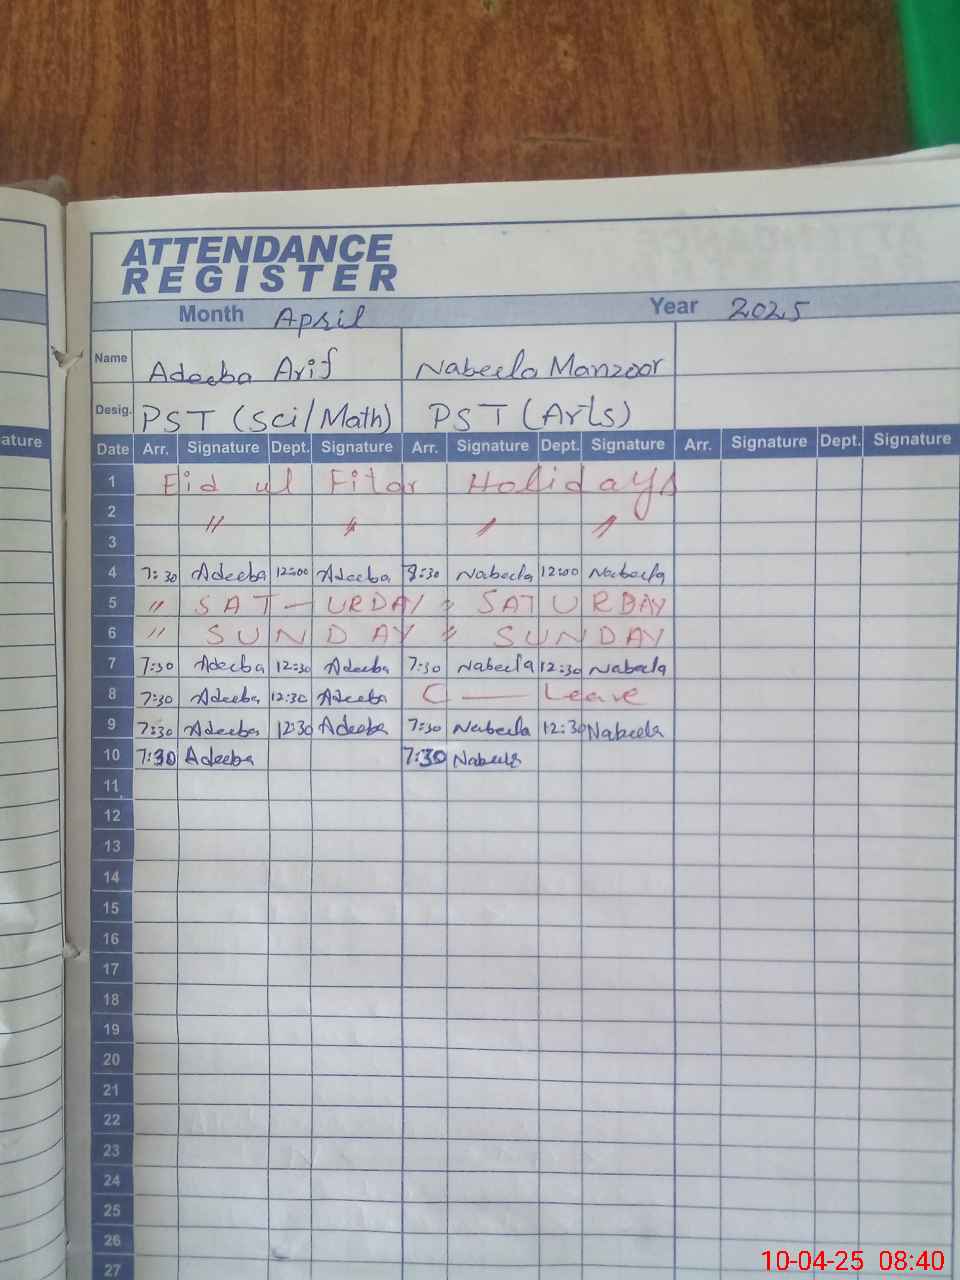 ATTENDANCE
REGISTER
Month April Year 2025
Name Adeeba Arif Nabeela Manzoor
Desig. PST (Sci/Math) PST (Arts)
ature Date Arr. Signature Dept. Signature Arr. Signature Dept. Signature Arr. Signature Dept. Signature
1 Eid ul Fitar Holidays
2 〃 〃 〃 〃
3
4 7:30 Adeeba 12:00 Adeeba 8:30 Nabeela 12:00 Nabeela
5 〃 SAT-URDAY 〃 SATURDAY
6 〃 SUNDAY 〃 SUNDAY
7 7:30 Adeeba 12:30 Adeeba 7:30 Nabeela 12:30 Nabeela
8 7:30 Adeeba 12:30 Adeeba C — Leave
9 7:30 Adeeba 12:30 Adeeba 7:30 Nabeela 12:30 Nabeela
10 7:30 Adeeba 7:30 Nabeela
11
12
13
14
15
16
17
18
19
20
21
22
23
24
25
26
27
10-04-25 08:40